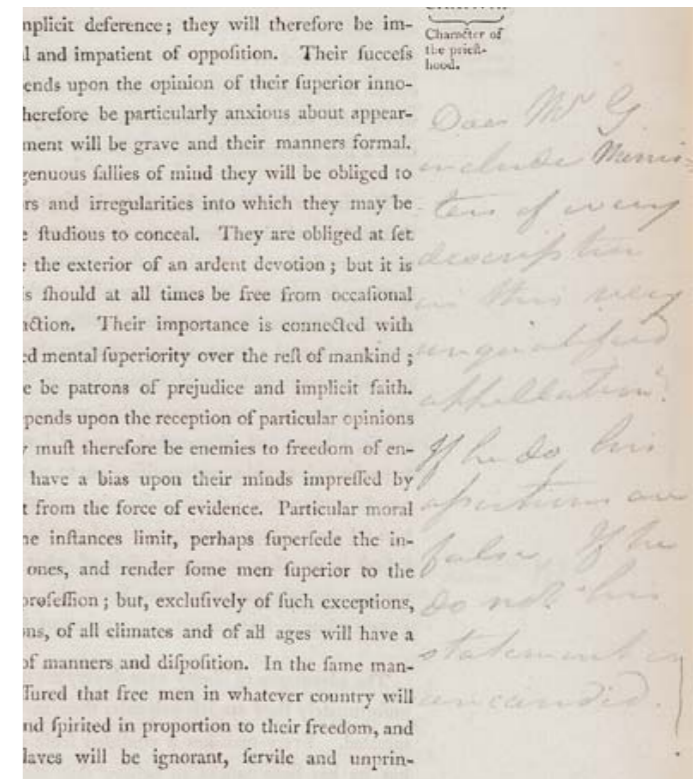 nplicit deference; they will therefore be im-
l and impatient of oppoſition. Their ſucceſs
ends upon the opinion of their ſuperior inno-
herefore be particularly anxious about appear-
ment will be grave and their manners formal.
genuous ſallies of mind they will be obliged to
rs and irregularities into which they may be
e ſtudious to conceal. They are obliged at ſet
the exterior of an ardent devotion; but it is
s ſhould at all times be free from occaſional
action. Their importance is connected with
ed mental ſuperiority over the reſt of mankind;
e be patrons of prejudice and implicit faith.
pends upon the reception of particular opinions
muſt therefore be enemies to freedom of en-
have a bias upon their minds impreſſed by
t from the force of evidence. Particular moral
ne inſtances limit, perhaps ſuperſede the in-
ones, and render ſome men ſuperior to the
profeſſion; but, excluſively of ſuch exceptions,
ns, of all climates and of all ages will have a
of manners and diſpoſition. In the ſame man-
ſured that free men in whatever country will
nd ſpirited in proportion to their freedom, and
laves will be ignorant, ſervile and unprin-
Character of
the prieſt-
hood.
Does Mr G
include Minis=
ters of every
description
in this very
unqualified
appellation?
If he do his
assertions are
false, If he
do not his
statement is
uncandid.